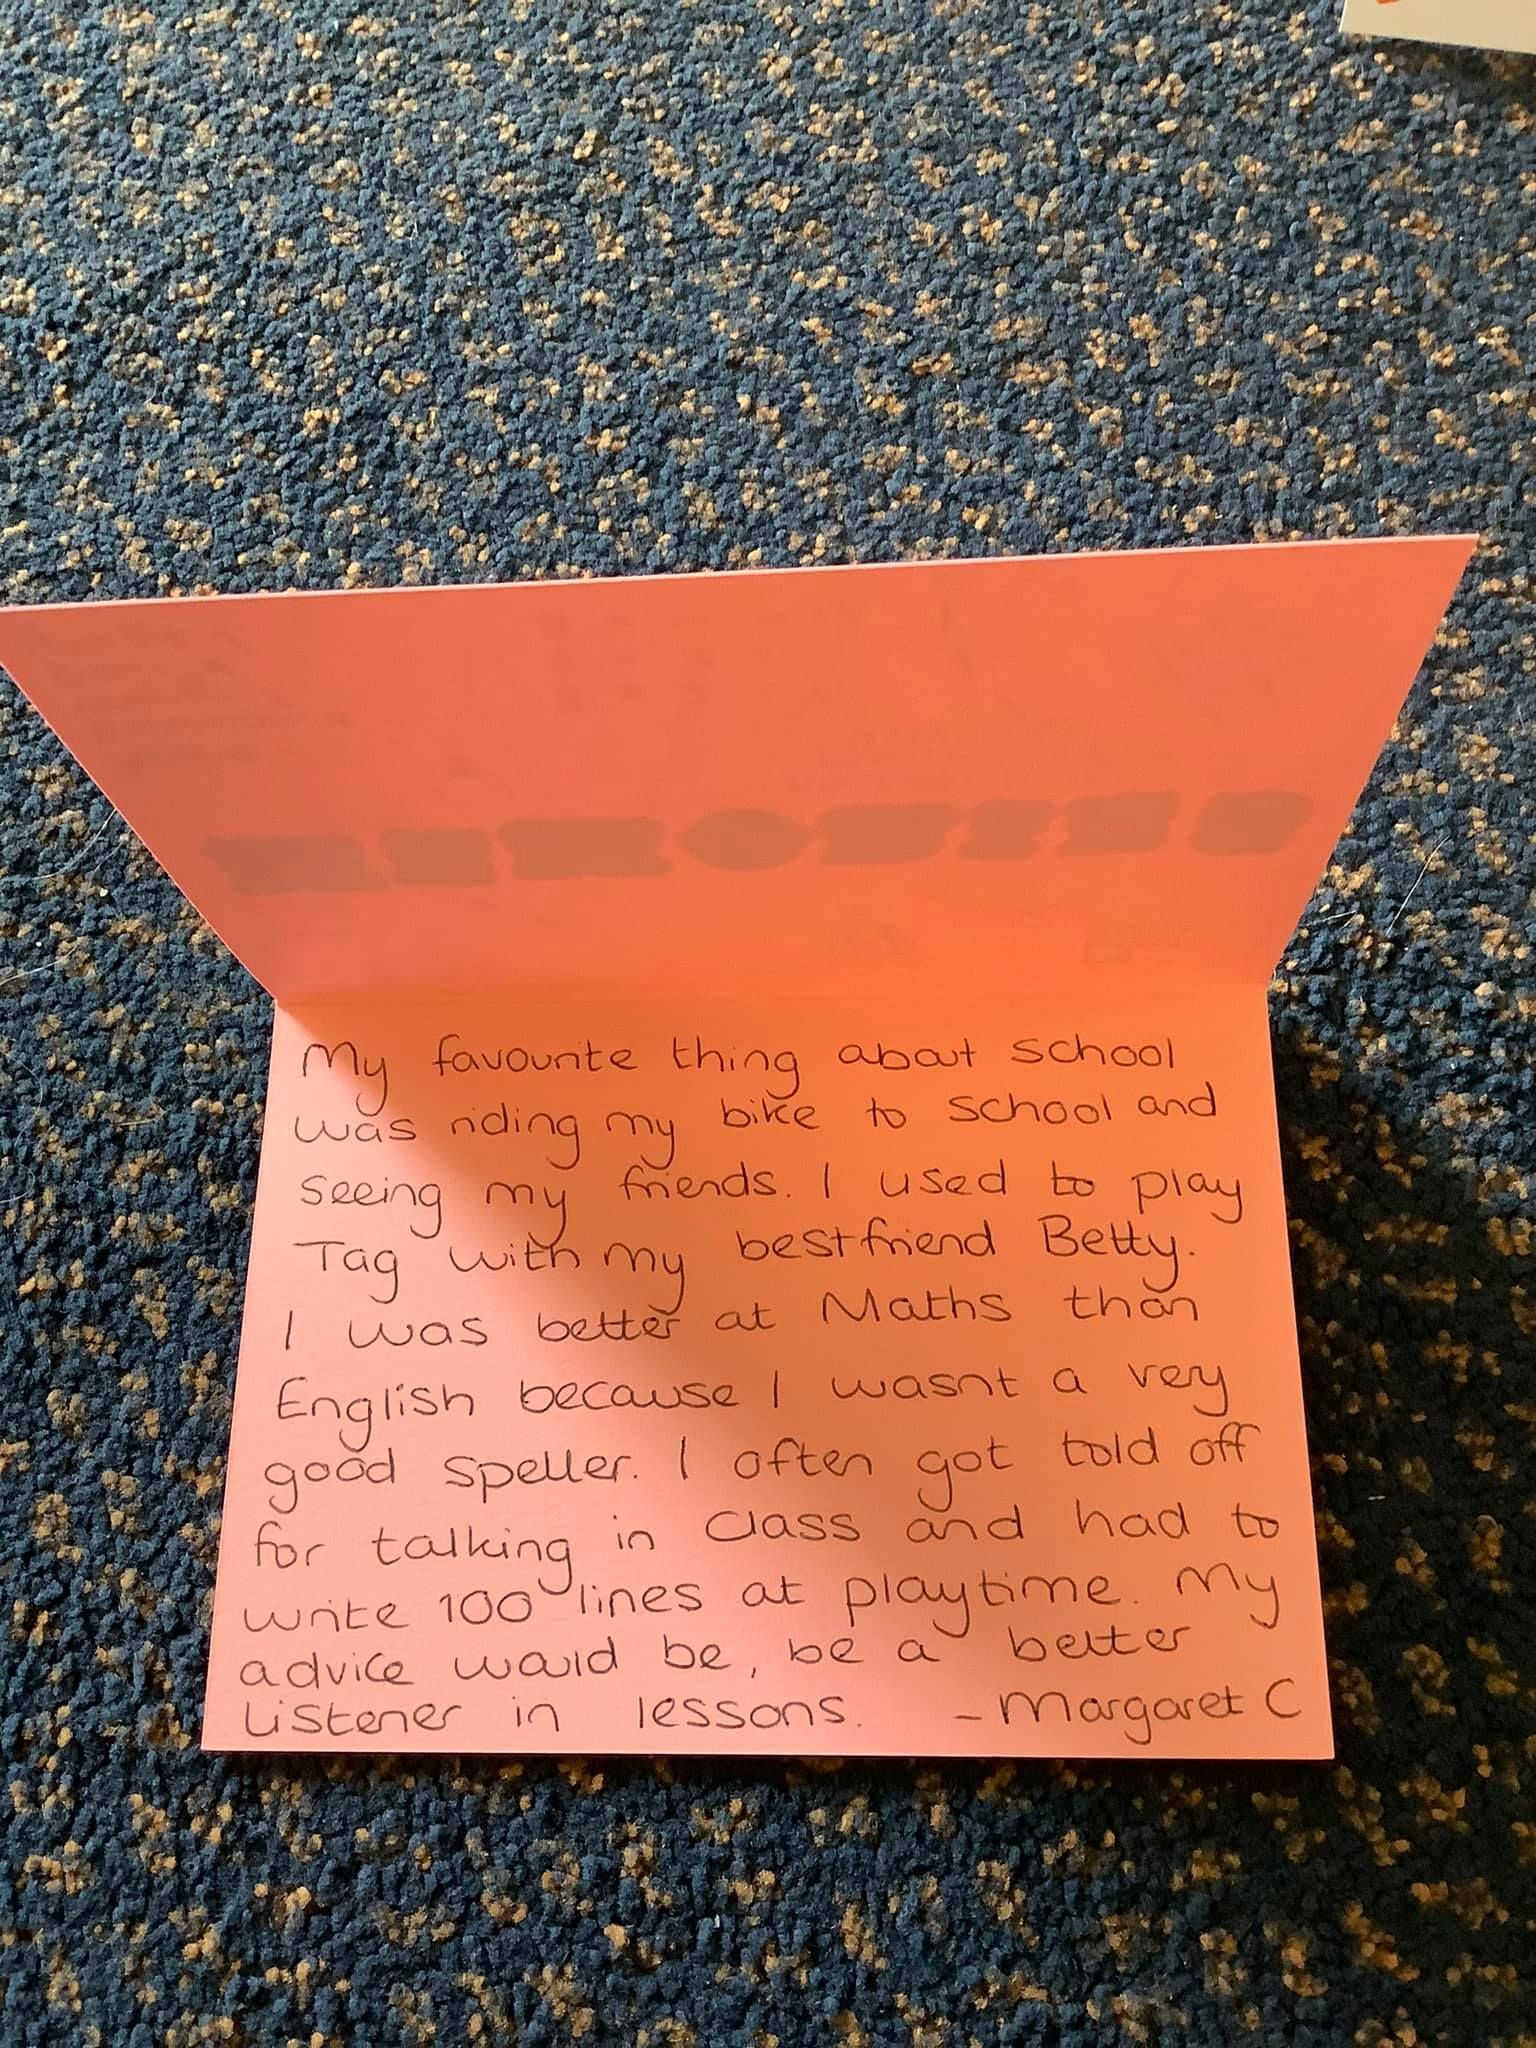 My favourite thing about school
was riding my bike to school and
seeing my friends. I used to play
Tag with my bestfriend Betty.
I was better at Maths than
English because I wasnt a very
good speller. I often got told off
for talking in class and had to
write 100 lines at playtime. My
advice would be, be a better
Listener in lessons. - Margaret C